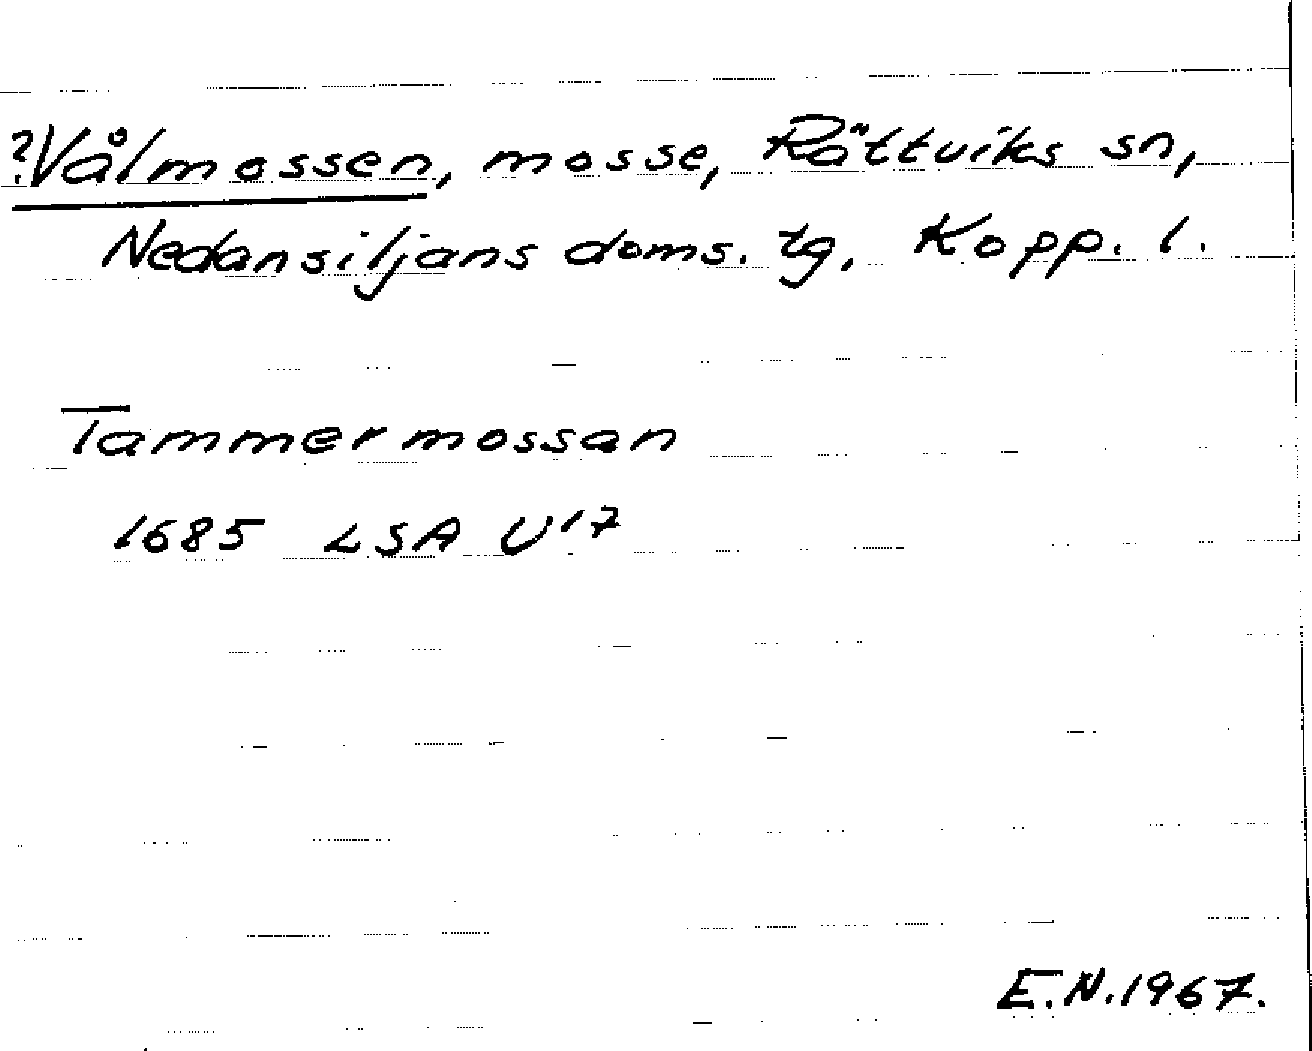 ?Vålmossen, mosse, Rättviks sn,
Nedansiljans doms. tg, Kopp. l.
Tammermossan
1685 LSA U17
E.N.1967.